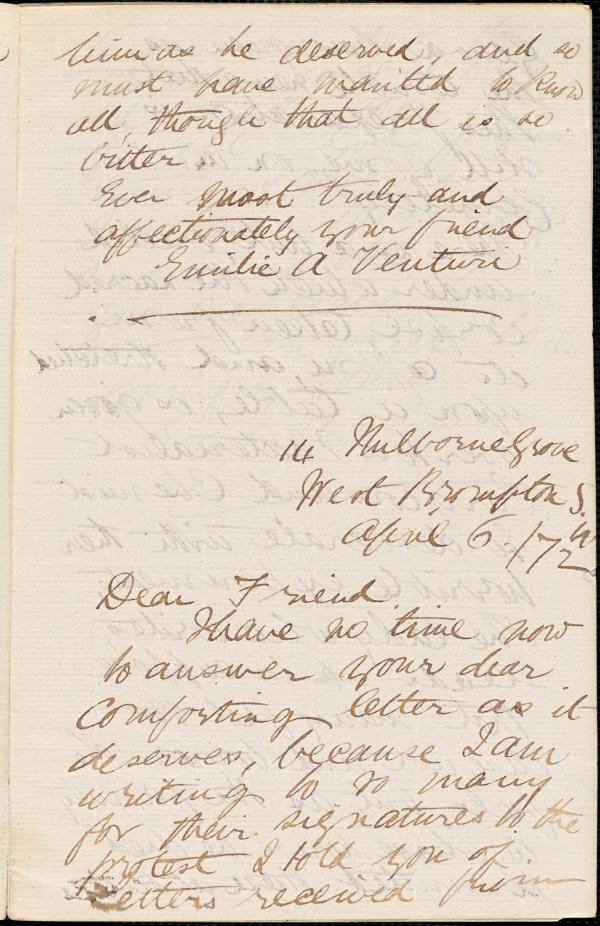 him as he deserved, and so
must have wanted to know
all, though that all is so
bitter.
Ever most truly and
affectionately your friend
Emilie A Venturi
14 Milborne Grove
West Brompton S.W
April 6. /72
Dear Friend.
I have no time now
to answer your dear
comforting letter as it
deserves, because I am
writing to so many
for their signatures to the
protest I told you of
Letters received from